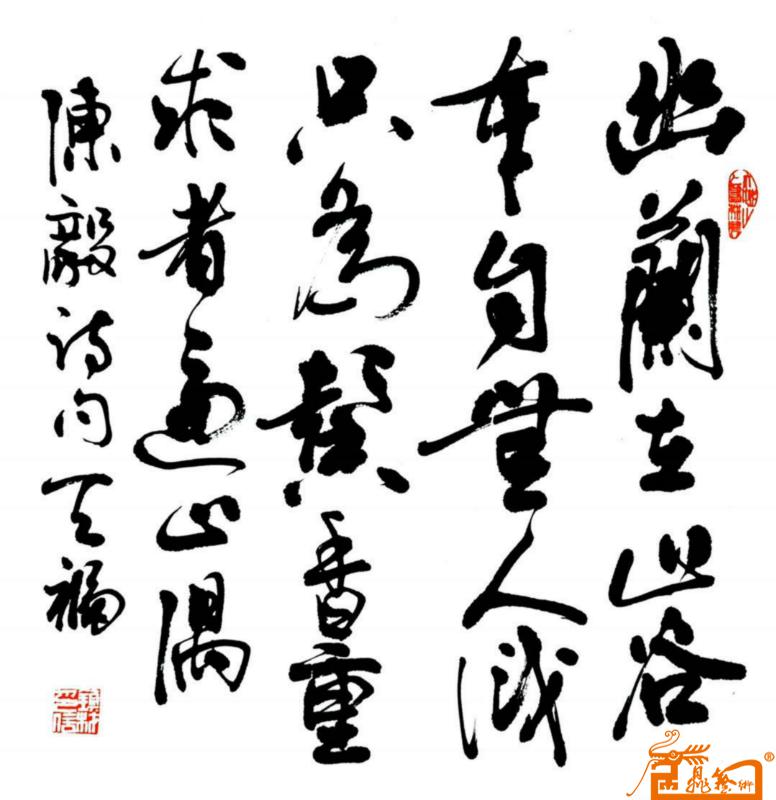 幽蘭在山谷
本自無人識
只為馨香重
求者遍山隅
陳毅诗句天福